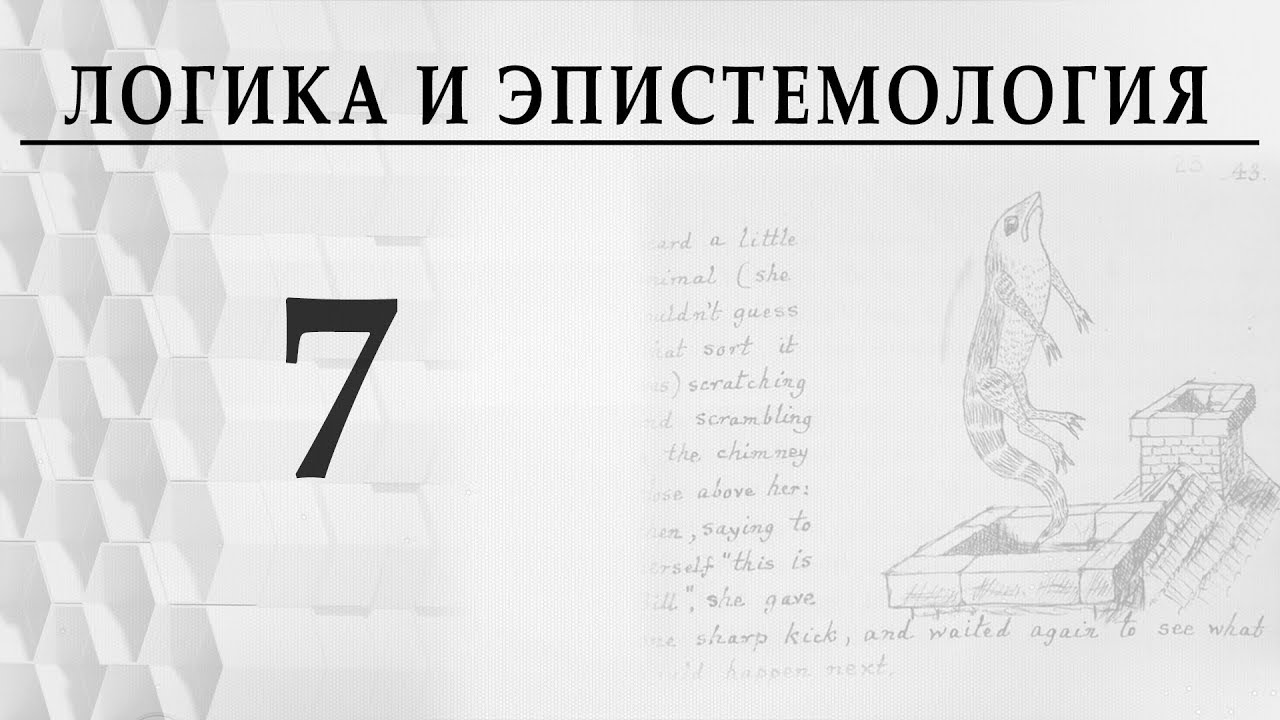 ЛОГИКА И ЭПИСТЕМОЛОГИЯ
7
23 43.
a little
(she
guess
sort it
scratching
scrambling
the chimney
above her:
, saying to
"this is
", she gave
sharp kick, and waited again to see what
happen next.